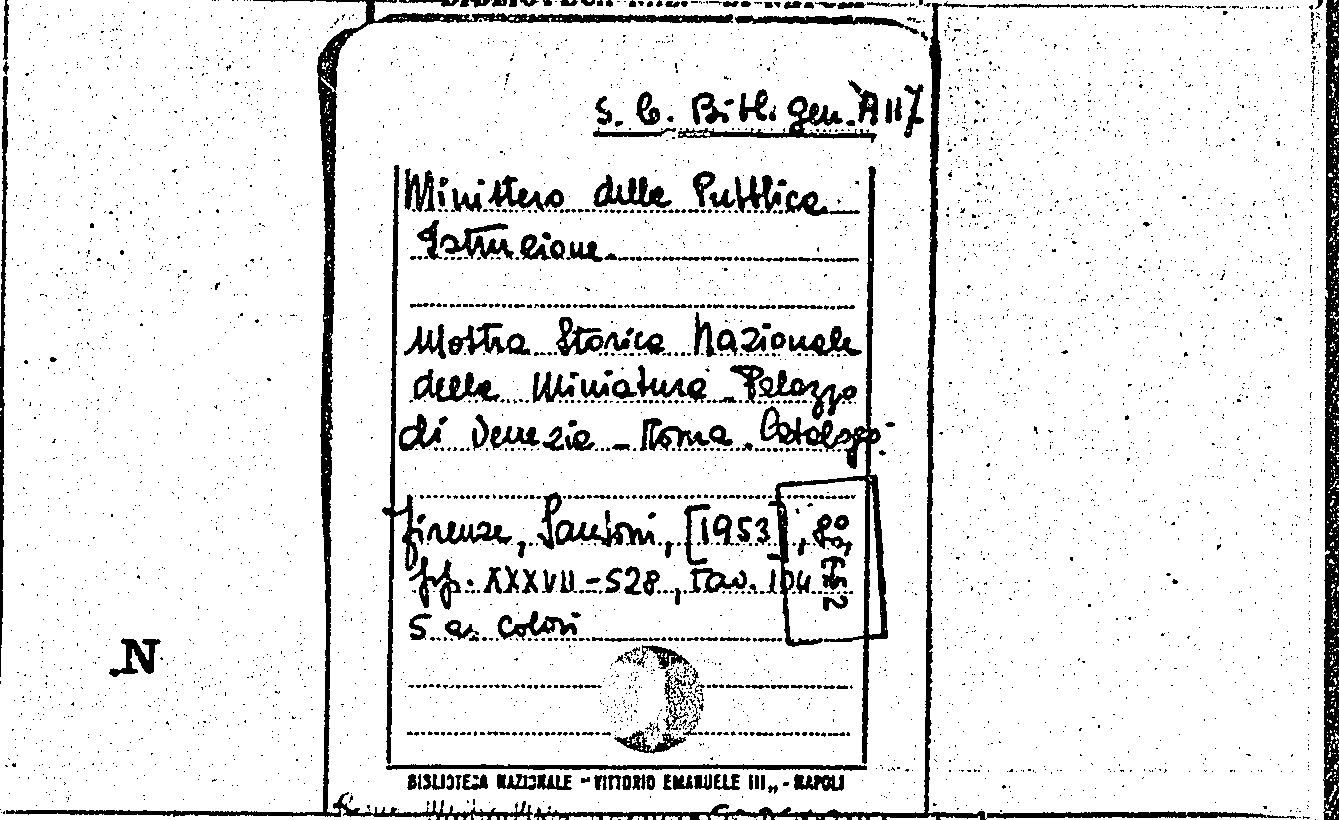 S. C. Bibl. gen. A 117
Ministero della Pubblica
Istruzione.
Mostra Storica Nazionale
della Miniatura - Palazzo
di Venezia - Roma. Catalogo.
Firenze, Sansoni, [1953], 8º,
pp. XXXVII-528, tav. 104
5 a colori
.N
BIBLIOTECA NAZIONALE "VITTORIO EMANUELE III„ - NAPOLI